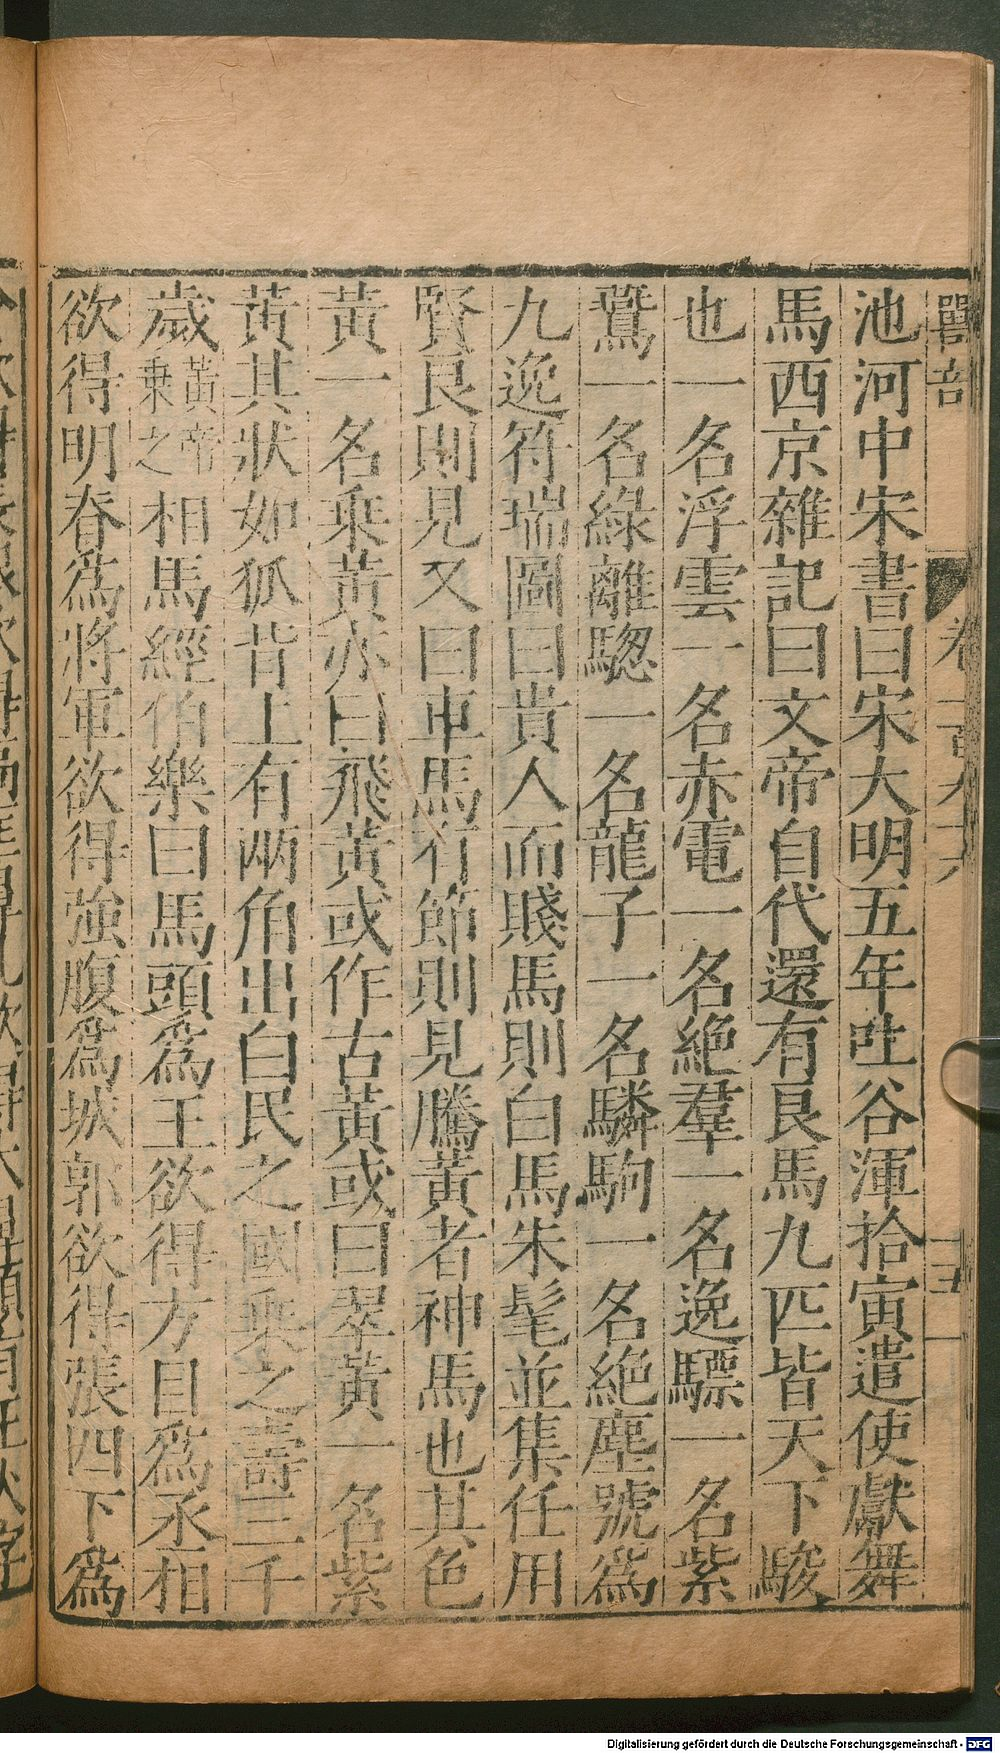 池河中宋書曰宋大明五年吐谷渾拾寅遣使獻舞
馬西京雜記曰文帝自代還有良馬九匹皆天下駿
也一名浮雲一名赤電一名絶羣一名逸驃一名紫
鷰一名綠離驄一名龍子一名驎駒一名絶塵號爲
九逸符瑞圖曰貴人而賤馬則白馬朱髦並集任用
賢良則見又曰車馬有節則見騰黃者神馬也其色
黃一名乘黃亦曰飛黃或作古黃或曰翠黃一名紫
黃其狀如狐背上有兩角出白民之國乘之壽三千
歲黃帝乘之相馬經伯樂曰馬頭爲王欲得方目爲丞相
欲得明脊爲將軍欲得強腹爲城郭欲得張四下爲
Digitalisierung gefördert durch die Deutsche Forschungsgemeinschaft - DFG